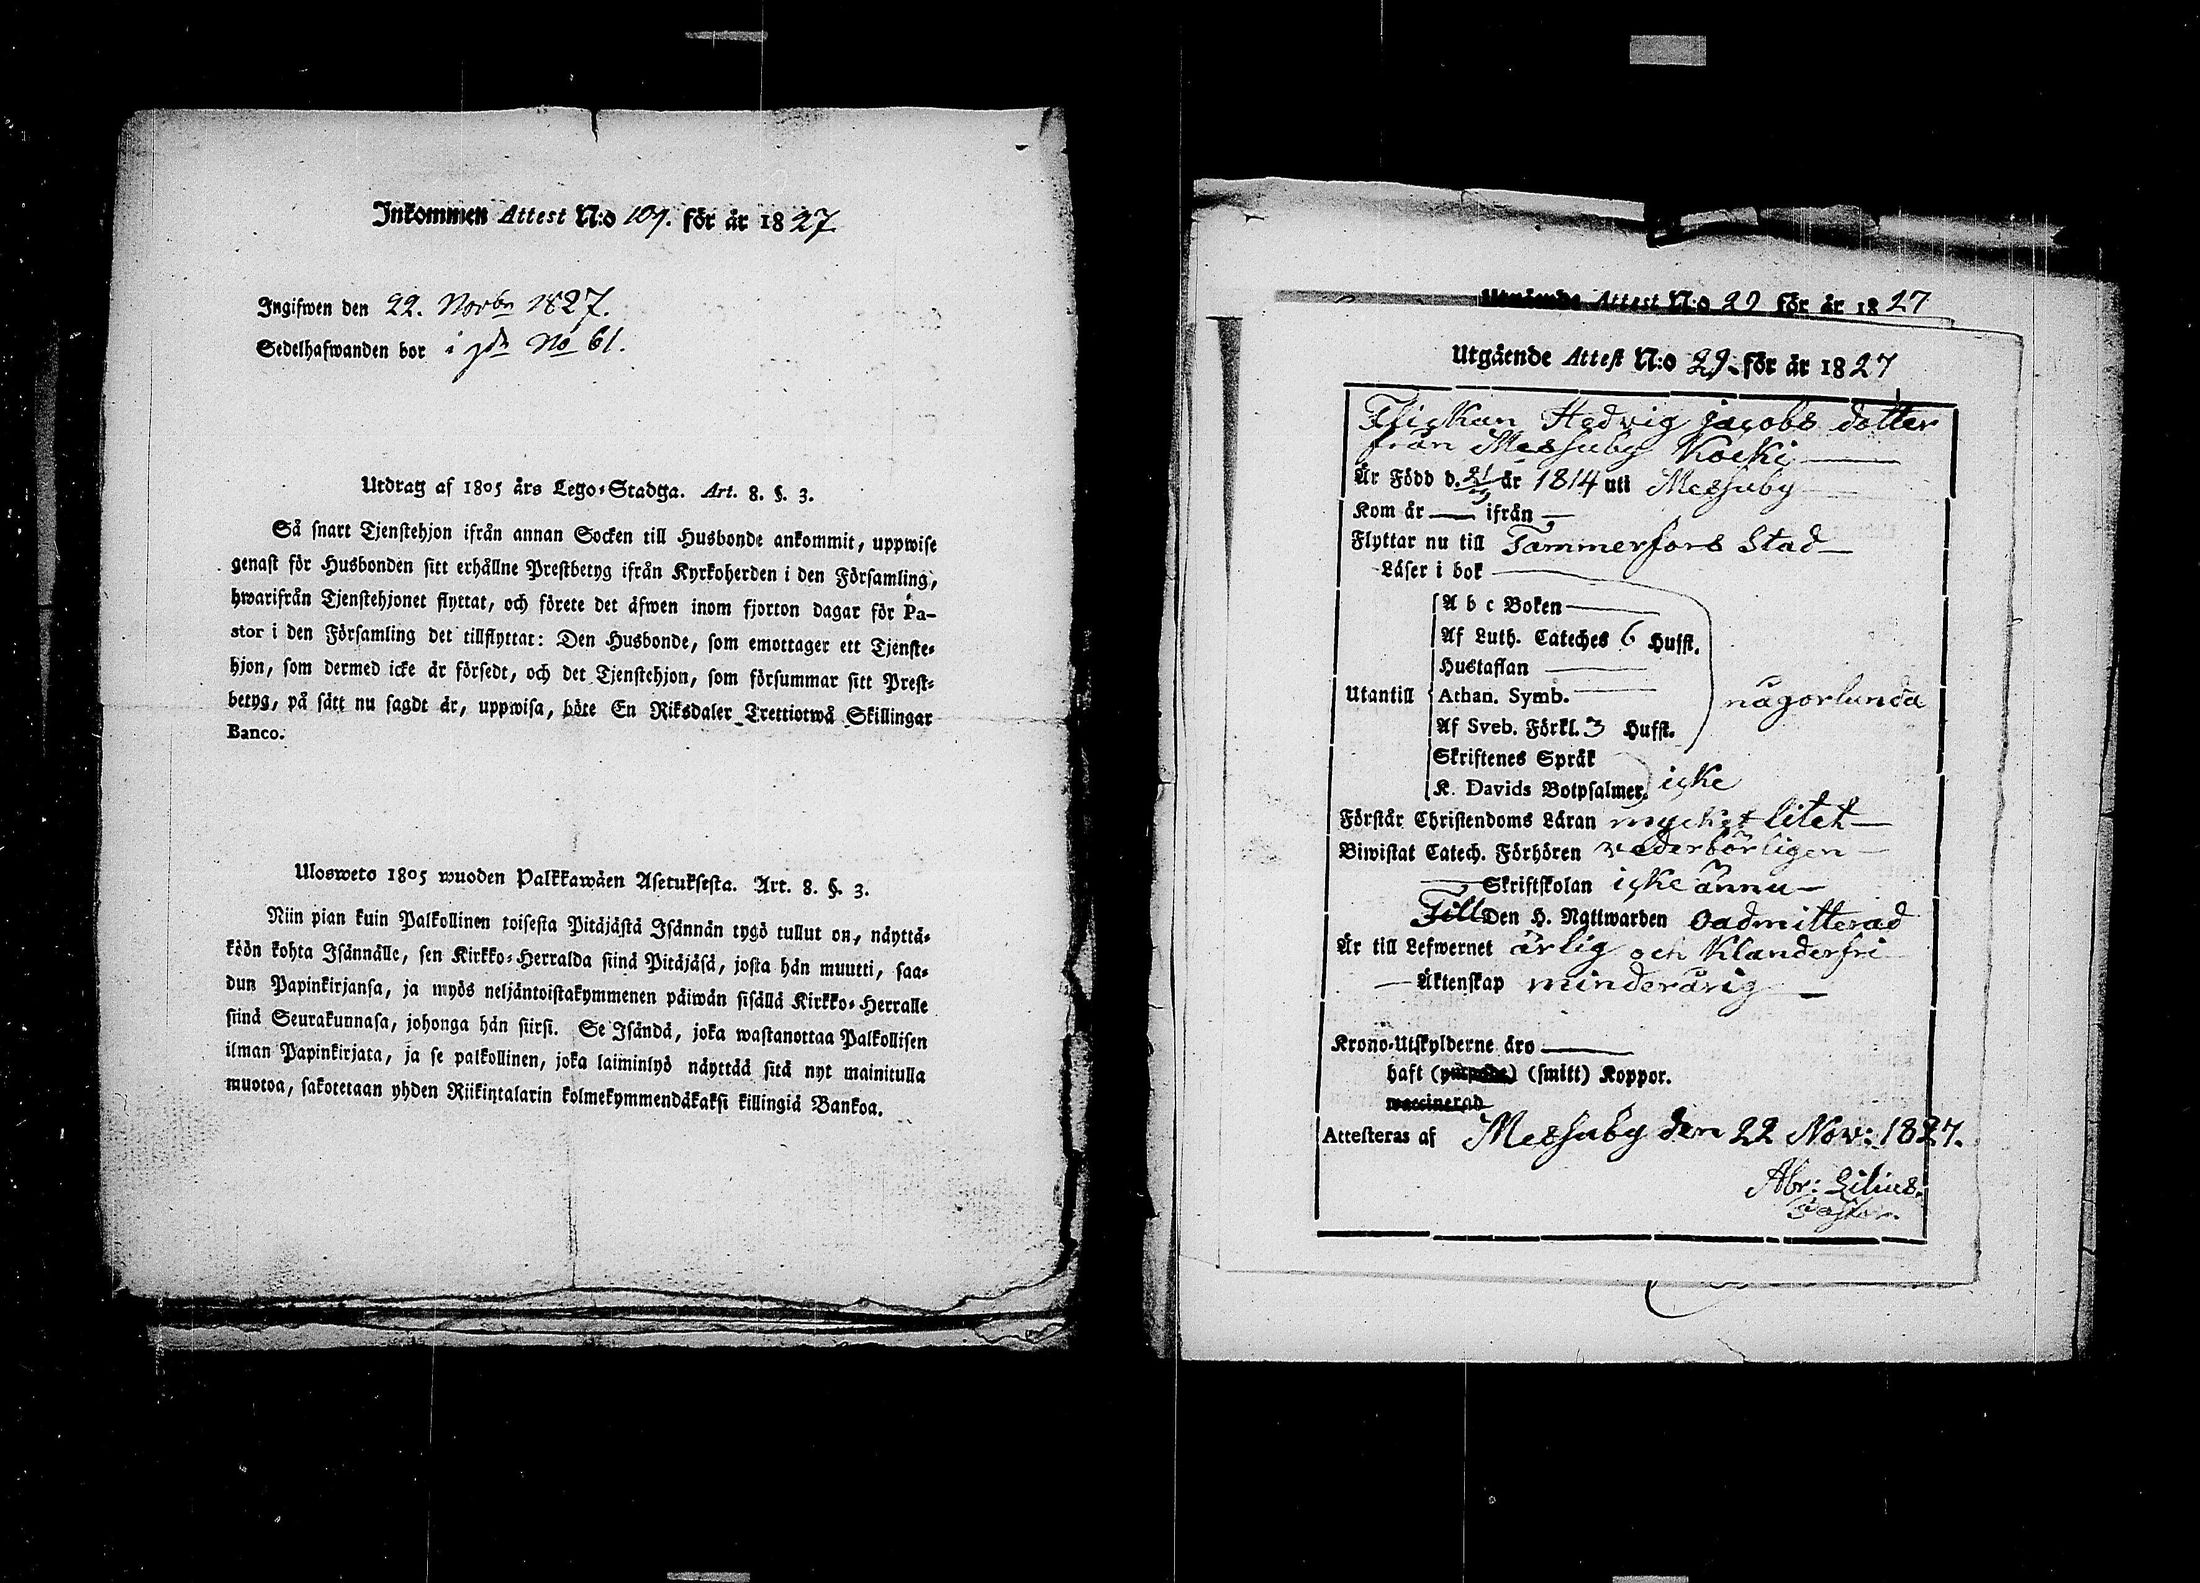 Inkommen Attest N:o 107. för år 1827
Ingifwen den 22. Novbr 1827.
Sedelhafwanden bor i gdn No 61.
Utdrag af 1805 års Lego-Stadga. Art. 8. §. 3.
Så snart Tjenstehjon ifrån annan Socken till Husbonde ankommit, uppwise
genast för Husbonden sitt erhållne Prestbetyg ifrån Kyrkoherden i den Församling,
hwarifrån Tjenstehjonet flyttat, och förete det äfwen inom fjorton dagar för Pa-
stor i den Församling det tillflyttat: Den Husbonde, som emottager ett Tjenste-
hjon, som dermed icke är försedt, och det Tjenstehjon, som försummar sitt Prest-
betyg, på sätt nu sagdt är, uppwisa, böte En Riksdaler Trettiotwå Skillingar
Banco.
Ulosweto 1805 wuoden Palkkawäen Asetuksesta. Art. 8. §. 3.
Niin pian kuin Palkollinen toisesta Pitäjästä Isännän tygö tullut on, näyttä-
köön kohta Isännälle, sen Kirkko-Herralda siinä Pitäjäsä, josta hän muutti, saa-
dun Papinkirjansa, ja myös neljäntoistakymmenen päiwän sisällä Kirkko-Herralle
siinä Seurakunnasa, johonga hän siirsi. Se Isändä, joka wastanottaa Palkollisen
ilman Papinkirjata, ja se palkollinen, joka laiminlyö näyttää sitä nyt mainitulla
muotoa, sakotetaan yhden Riikintalarin kolmekymmendäkaksi killingiä Bankoa.
Utgående Attest N:o 29 för år 1827
Utgående Attest N:o 29. för år 1827
Flickan Hedvig Jacobs dotter
från Messuby Koski
Är Född d. 21/9 år 1814 uti Messuby
Kom år — ifrån —
Flyttar nu till Tammerfors Stad
Läser i bok
A b c Boken
Af Luth. Cateches 6 Hufst.
Hustaflan
Utantill Athan. Symb. någorlunda
Af Sveb. Förkl. 3 Hufst.
Skriftenes Språk
K. Davids Botpsalmer. icke
Förstår Christendoms Läran mycket litet
Biwistat Catech. Förhören vederbörligen
— Skriftskolan icke ännu
Till Den H. Nattwarden oadmitterad
Är till Lefwernet ärlig och klanderfri
— Äktenskap minderårig
Krono-Utskylderne äro —
haft (ympade) (smitt) Koppor.
waccinerad
Attesteras af Messuby den 22 Nov: 1827.
Abr: Lilius.
Pastor.